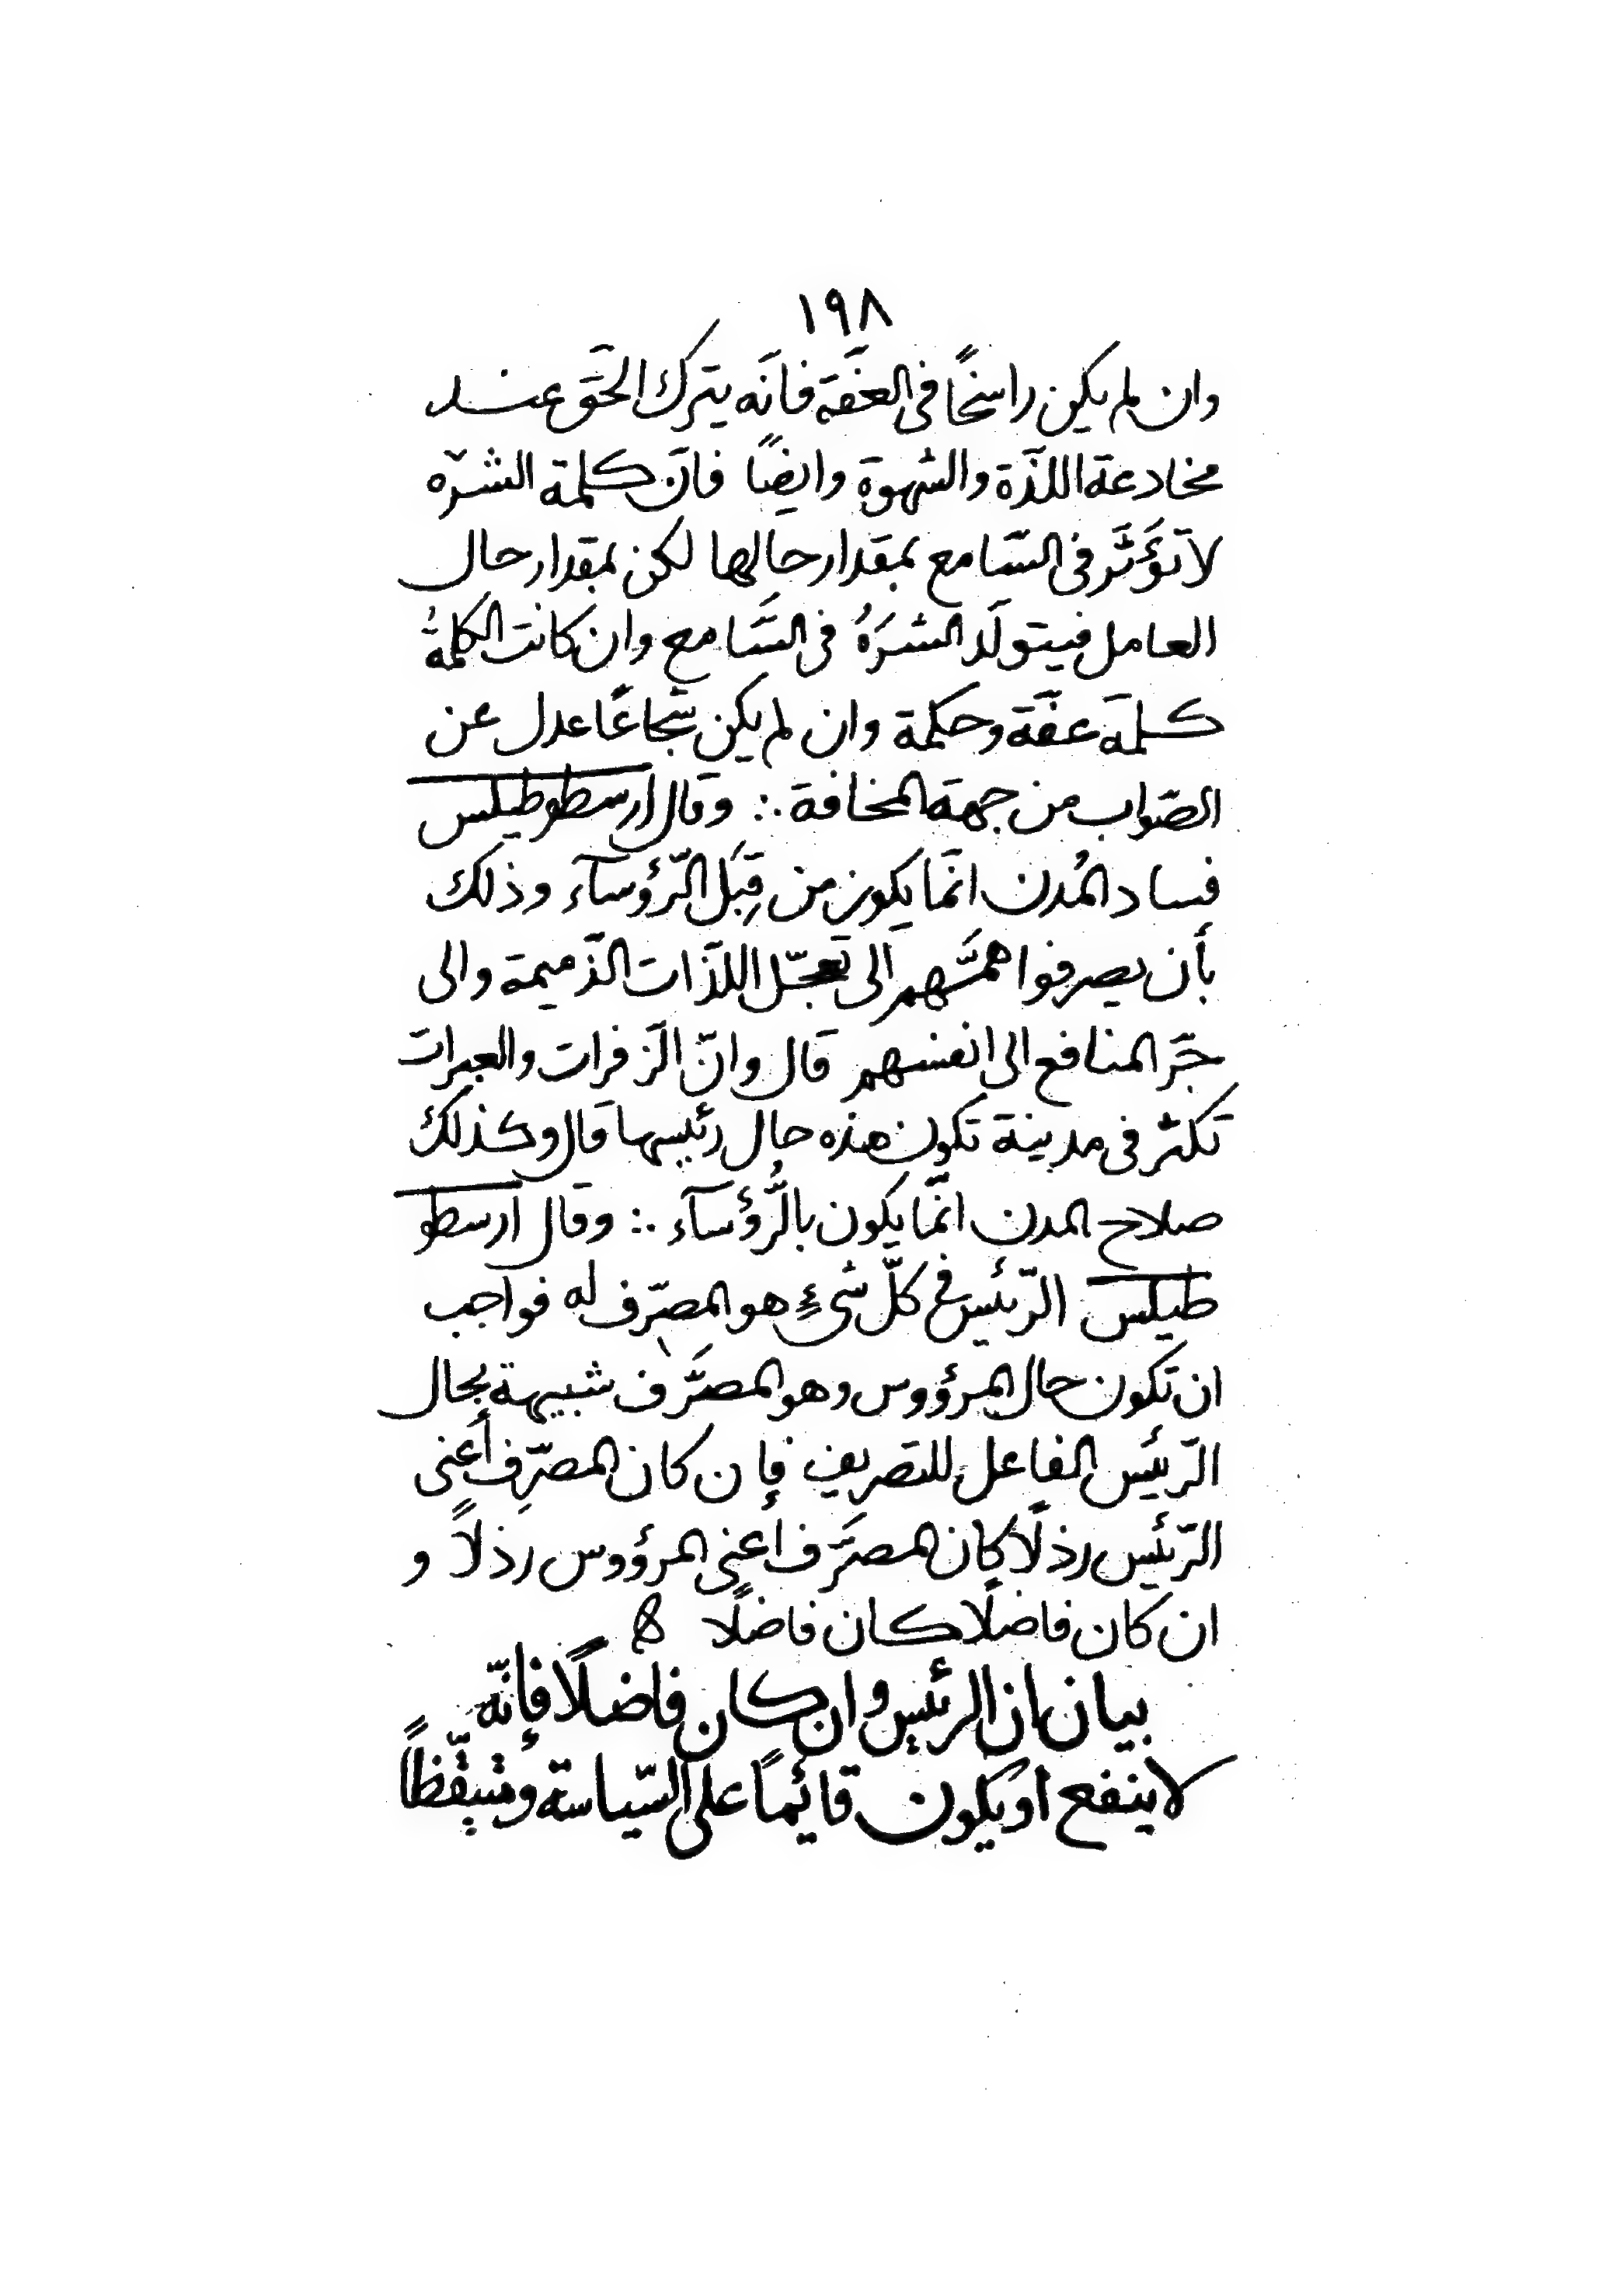 ١٩٨
وان لم يكن راسخًا فى العفّة فانّه يترك الحقّ عند
مخادعة اللذّة والشهوة وايضًا فانّ كلمة الشره
لا تؤثّر فى السّامع بمقدار حالها لكن بمقدار حال
العامل فيتولّد الشرَهُ فى السّامع وان كانت الكلمةُ
كلمة عفّة وحكمة وان لم يكن شجاعًا عدل عن
الصّواب من جهة المخافة ∴ وقال ارسطوطيلس
فساد المُدن انّما يكون من قِبَل الرّؤسآء وذلك
بأن يصرفوا همّتهم الى تعجّل اللذّات الذّميمة والى
جرّ المنافع الى انفسهم قال وانّ الزفرات والعبرات
تكثر فى مدينة تكون هذه حال رئيسها قال وكذلك
صلاح المدن انّما يكون بالرُّؤسآء ∴ وقال ارسطو
طيلس الرّئيس فى كلّ شىءٍ هو المصرّف له فواجب
ان تكون حال المرؤوس وهو المصرَّف شبيهة بحال
الرّئيس الفاعل للتصريف فإن كان المصرِّف أعنى
الرّئيس رذلًا كان المصرَّف أعنى المرؤوس رذلاً و
ان كان فاضلًا كان فاضلًا
بيان ان الرئيس وان كان فاضلًا فإنّه
لا ينفع او يكون قائيمًا على السّياسة ومتيقّظًا